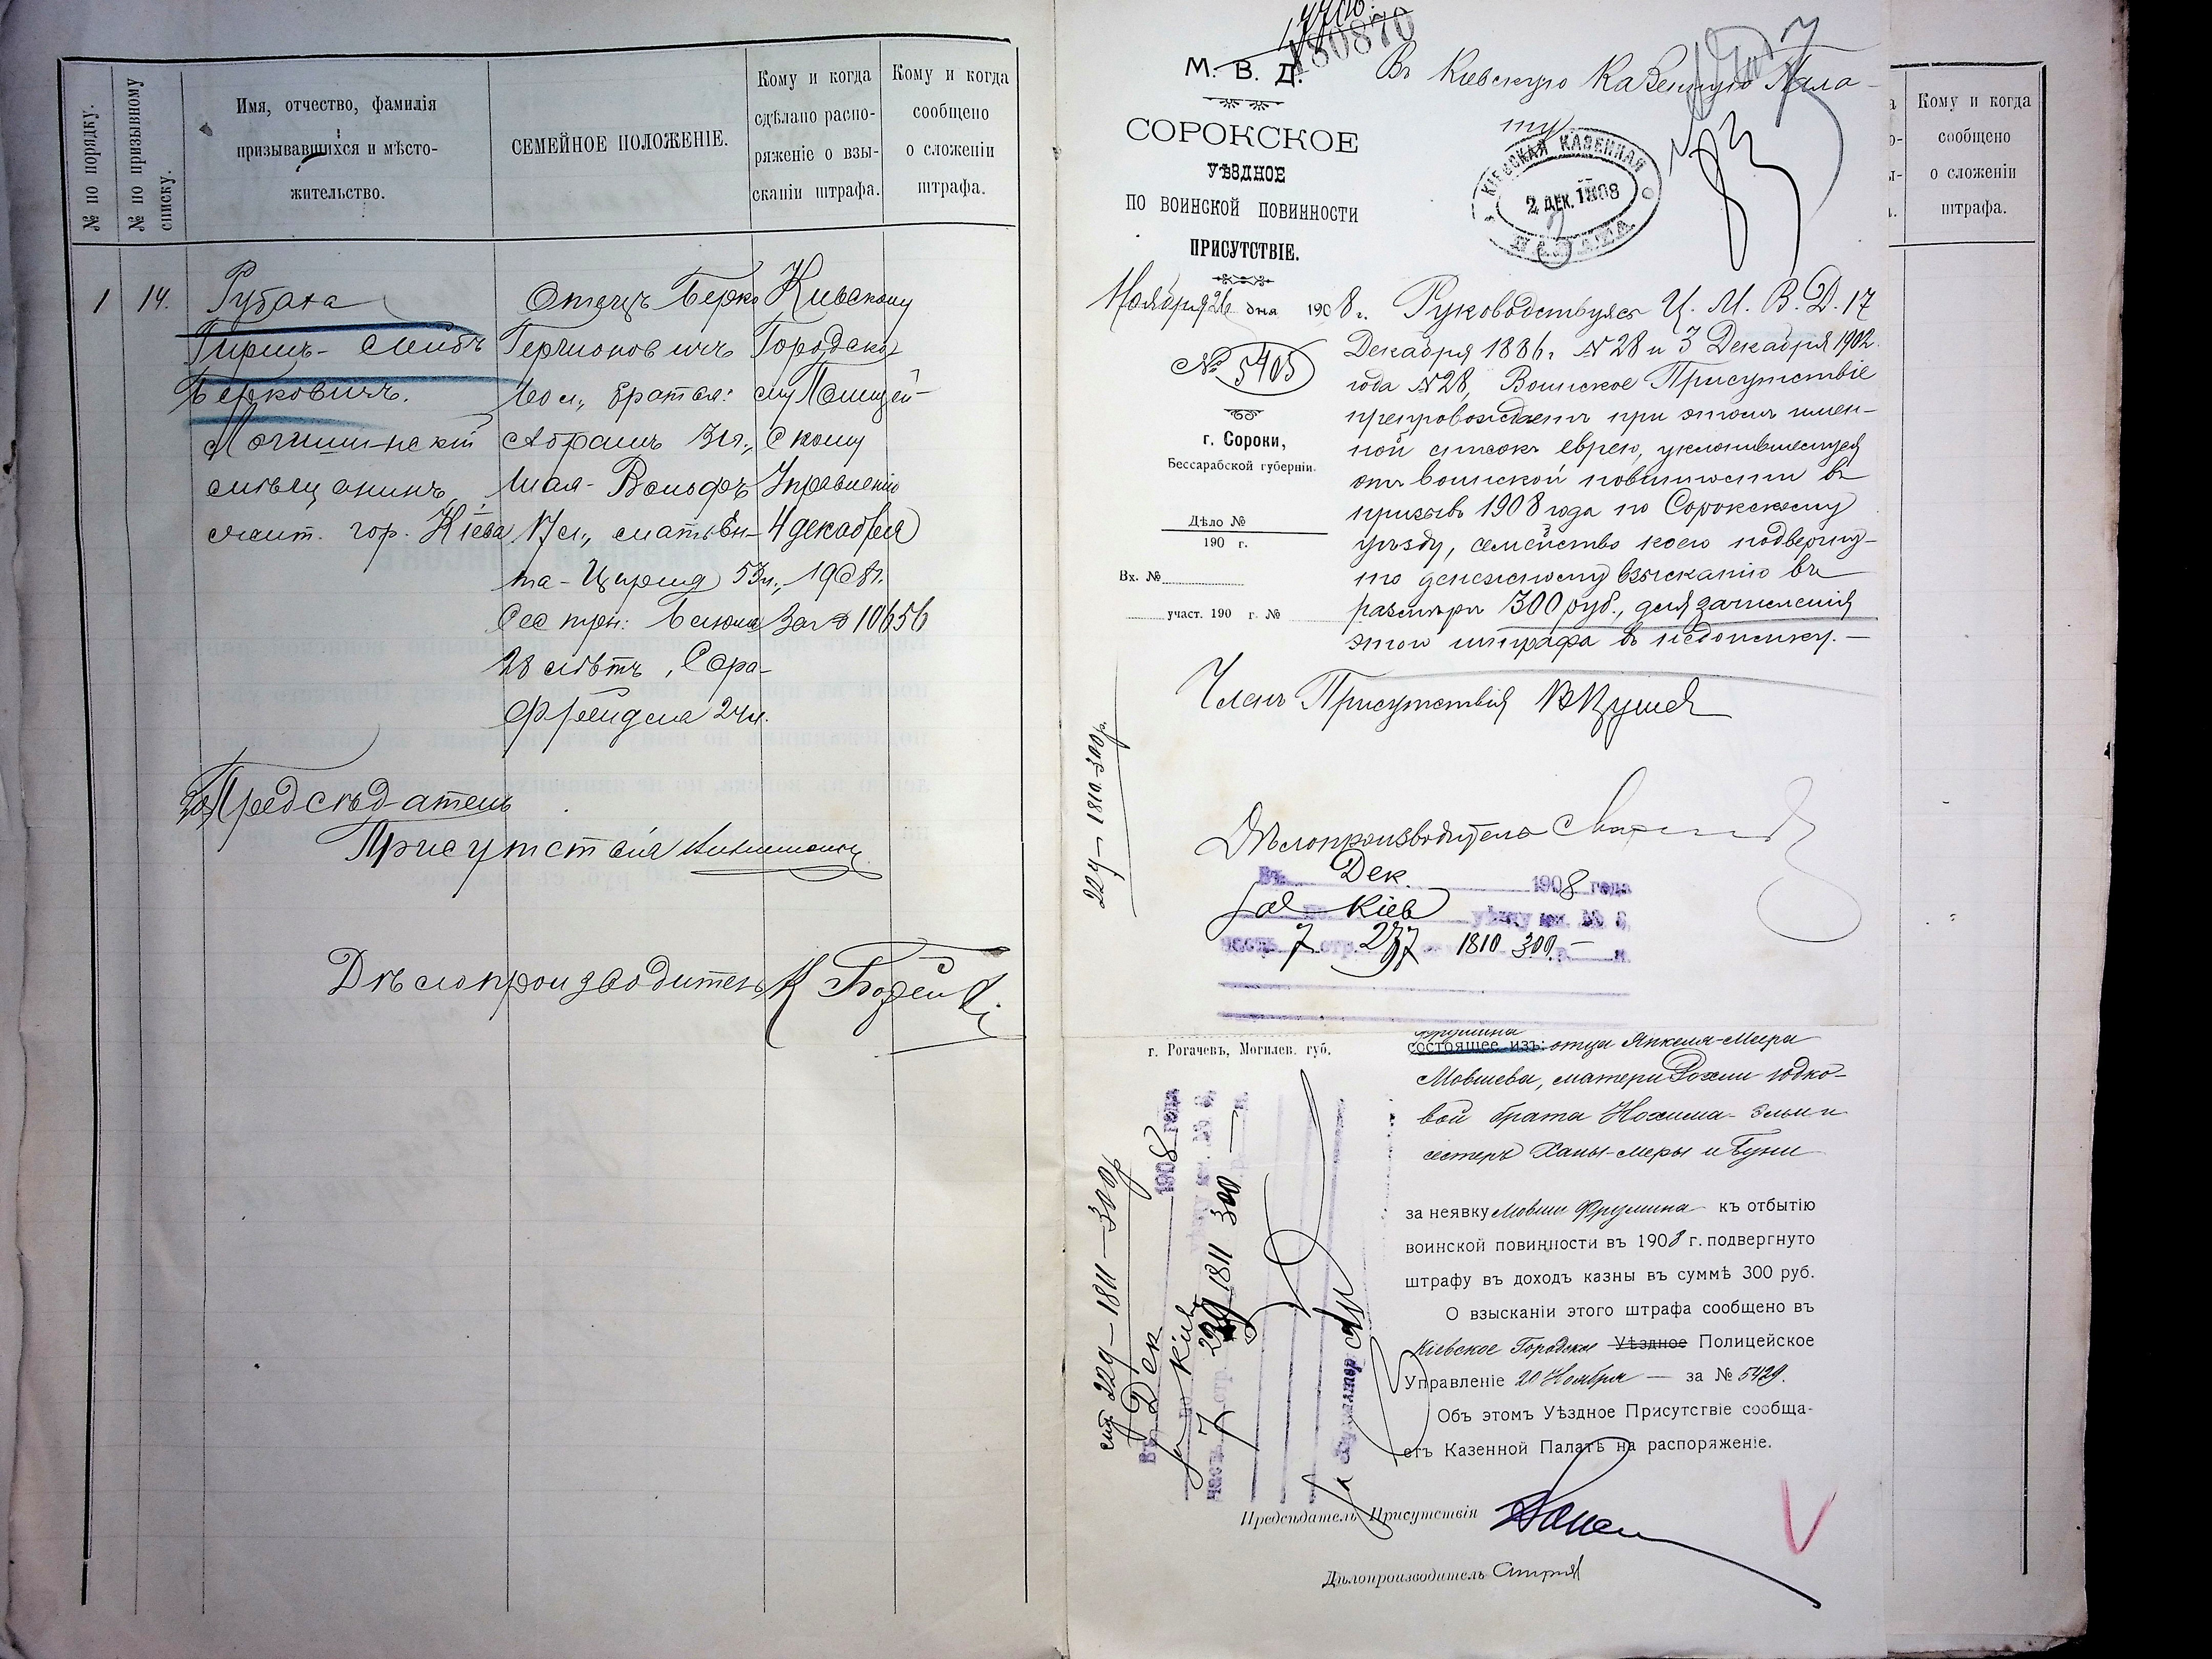 № по порядку.
№ по призывному
списку.
Имя, отчество, фамилія
призывавшихся и мѣсто-
жительство.
СЕМЕЙНОЕ ПОЛОЖЕНІЕ.
Кому и когда
сдѣлано распо-
ряженіе о взы-
сканіи штрафа.
Кому и когда
сообщено
о сложеніи
штрафа.
1
14.
Гиршъ-Лейбъ
Берковичъ.
мѣщанинъ,
жит. гор. Кіева
Отецъ Берко
60 л., братья:
Абрамъ 31 л.,
Шая-Вольфъ
17 л., мать Ен-
та-Цирля 53 л.,
Сестры: Бейла
28 лѣтъ, Сора-
Фрейдла 24 л.
Кіевскому
Городско-
му Полицей-
скому
Управленію
4 декабря
1908 г.
за № 10656
За Предсѣдателя
Присутствія
Дѣлопроизводитель
180870
М. В. Д.
СОРОКСКОЕ
УѢЗДНОЕ
ПО ВОИНСКОЙ ПОВИННОСТИ
ПРИСУТСТВІЕ.
Ноября 26 дня 1908 г.
№ 5405
г. Сороки,
Бессарабской губерніи.
Дѣло №
190 г.
Вх. №
участ. 190 г. №
Въ Кіевскую Казенную Пала-
ту
КІЕВСКАЯ КАЗЕННАЯ
2 ДЕК. 1908
ПАЛАТА
Руководствуясь Ц. М. В. Д. 17
Декабря 1886 г. № 28 и 3 Декабря 1902
года № 28, Воинское Присутствіе
препровождаетъ при этомъ имен-
ной списокъ еврею, уклонившемуся
отъ воинской повинности въ
призывъ 1908 года по Сорокскому
уѣзду, семейство коего подвергну-
то денежному взысканію въ
размѣрѣ 300 руб., для зачисленія
этого штрафа въ недоимку. —
Членъ Присутствія
Дѣлопроизводитель
227 — 1810 — 300 р.
Въ Дек. 1908 года
Кіев уѣзду кн. № 8,
часть 7 стр. 227 1810 300 р. — к.
г. Рогачевъ, Могилев. губ.
состоящее изъ: отца Янкеля-Меера
Мовшева, матери Рохли Юдко-
вой брата Нохима-Эльи и
сестеръ Ханы-Меры и Буни
за неявку Мовши Фрумина къ отбытію
воинской повинности въ 1908 г. подвергнуто
штрафу въ доходъ казны въ суммѣ 300 руб.
О взысканіи этого штрафа сообщено въ
Кіевское Городское Уѣздное Полицейское
Управленіе 20 Ноября — за № 5429.
Объ этомъ Уѣздное Присутствіе сообща-
етъ Казенной Палатѣ на распоряженіе.
Предсѣдатель Присутствія
Дѣлопроизводитель
стр. 229 — 1811 — 300 р
Въ Дек 1908 года
по Кіев
часть 7 стр. 229 1811 300 —
Бухгалтеръ
Кому и когда
сообщено
о сложеніи
штрафа.